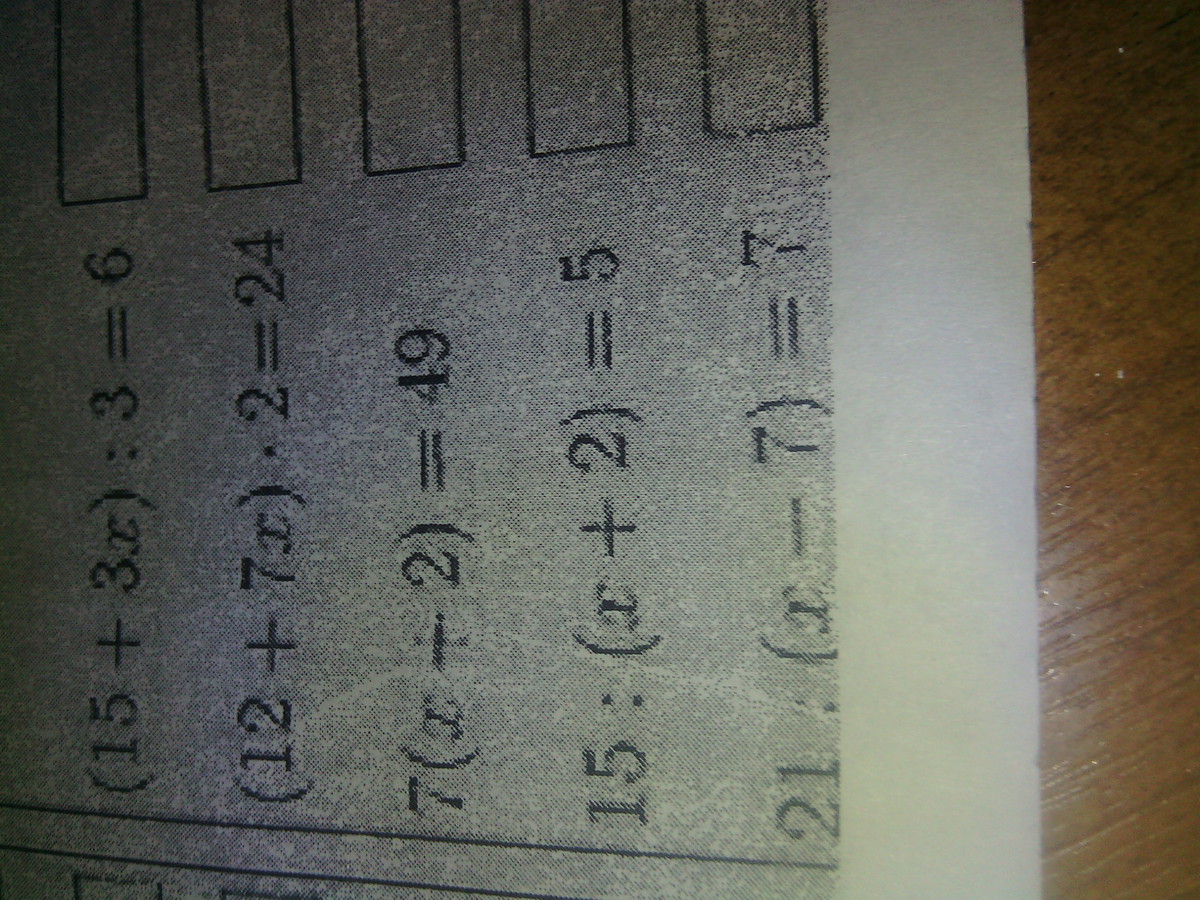 (15 + 3x) : 3 = 6
(12 + 7x) · 2 = 24
7(x − 2) = 49
15 : (x + 2) = 5
21 : (x − 7) = 7